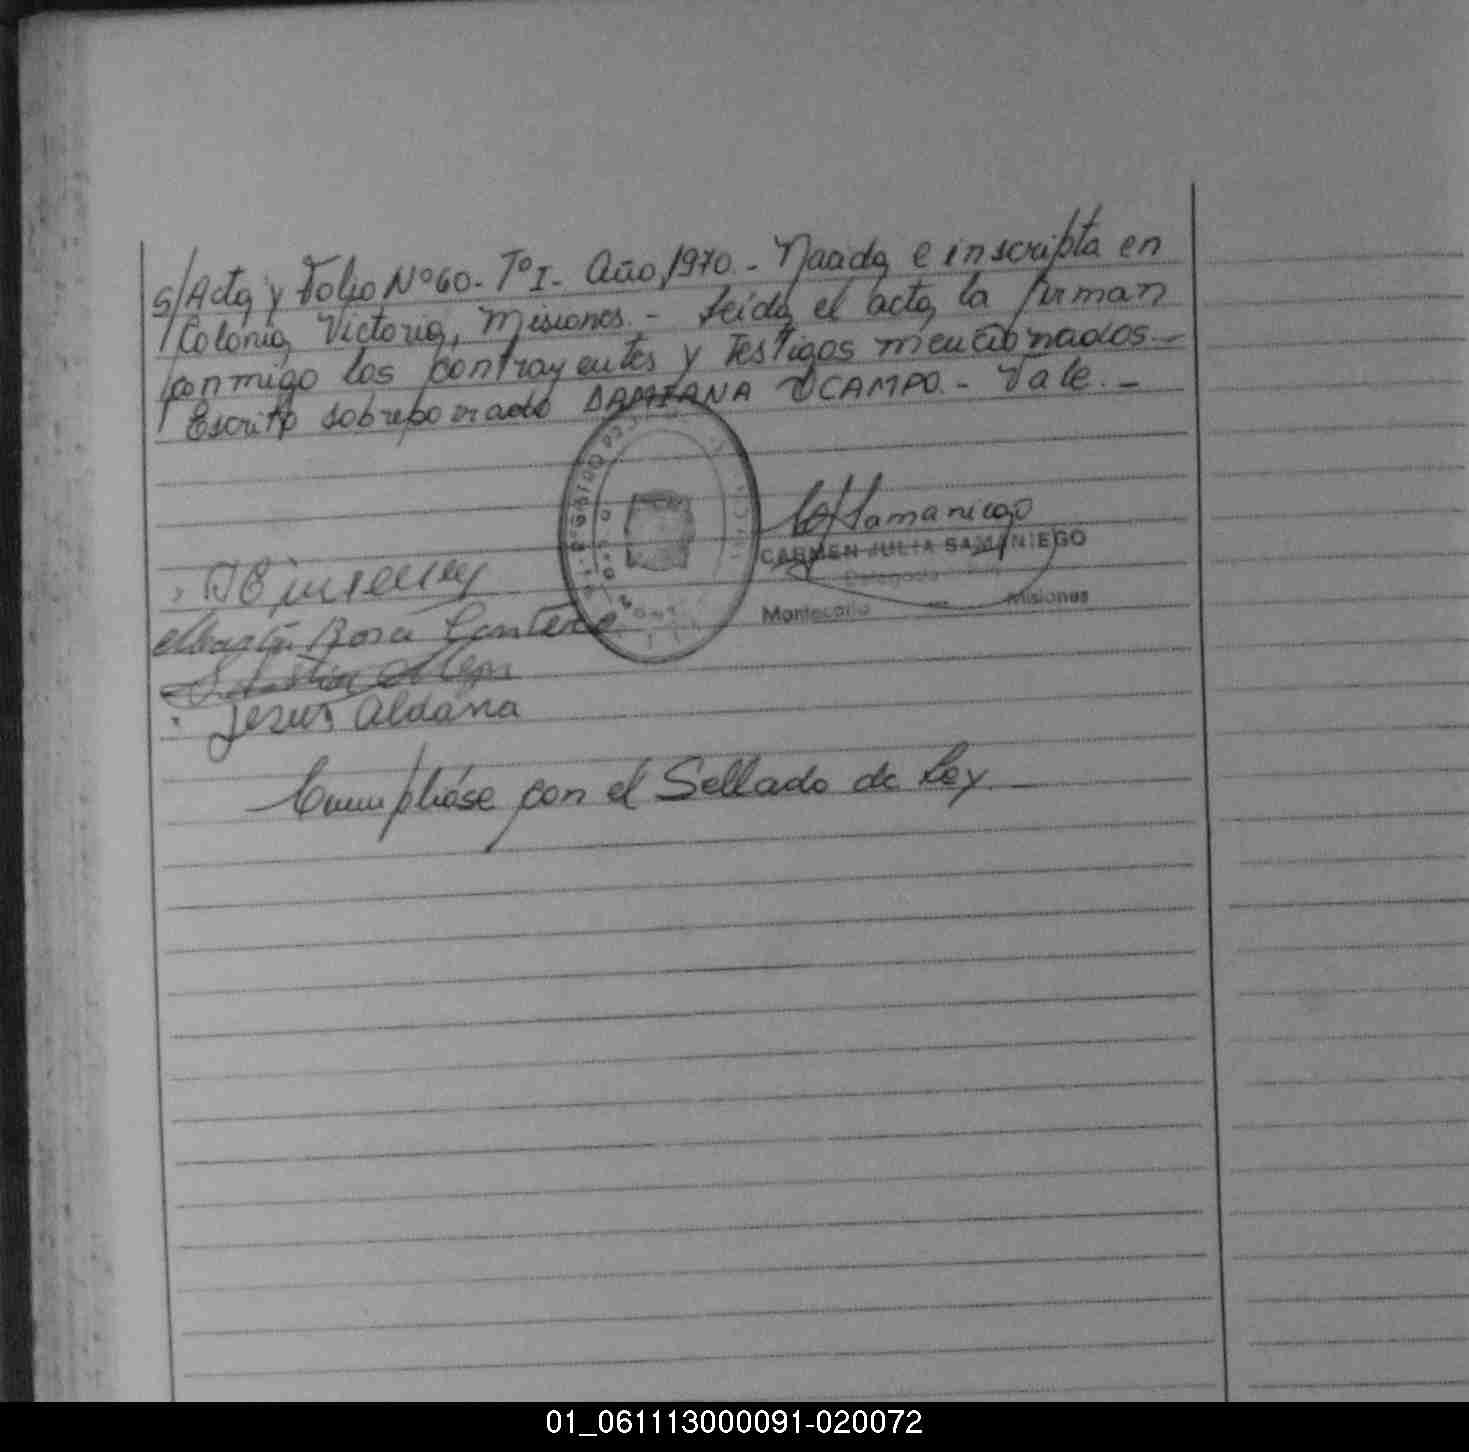 s/Acta y Folio Nº60.- Tº I.- Año 1970.- Naada e inscripta en
Colonia Victoria, Misiones.- Leida el acta, la firman
conmigo los contrayentes y Testigos mencionados.-
Escrito sobreborrado DAMIANA OCAMPO.- Vale.-
Samaniego
CARMEN JULIA SAMANIEGO
Delegada
Montecarlo Misiones
Martín Rosa
Jesus aldana
Cumplióse con el Sellado de Ley.-
01_061113000091-020072